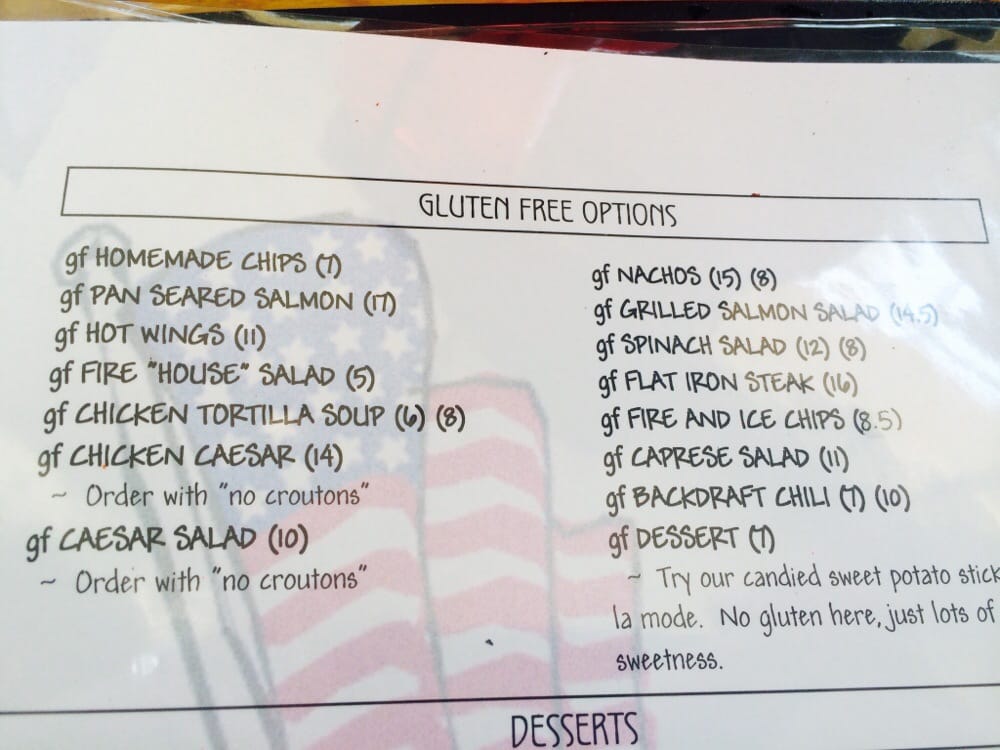 GLUTEN FREE OPTIONS
gf HOMEMADE CHIPS (7)
gf PAN SEARED SALMON (17)
gf HOT WINGS (11)
gf FIRE "HOUSE" SALAD (5)
gf CHICKEN TORTILLA SOUP (6) (8)
gf CHICKEN CAESAR (14)
~ Order with "no croutons"
gf CAESAR SALAD (10)
~ Order with "no croutons"
gf NACHOS (15) (8)
gf GRILLED SALMON SALAD (14.5)
gf SPINACH SALAD (12) (8)
gf FLAT IRON STEAK (16)
gf FIRE AND ICE CHIPS (8.5)
gf CAPRESE SALAD (11)
gf BACKDRAFT CHILI (7) (10)
gf DESSERT (7)
~ Try our candied sweet potato stick
la mode. No gluten here, just lots of
sweetness.
DESSERTS